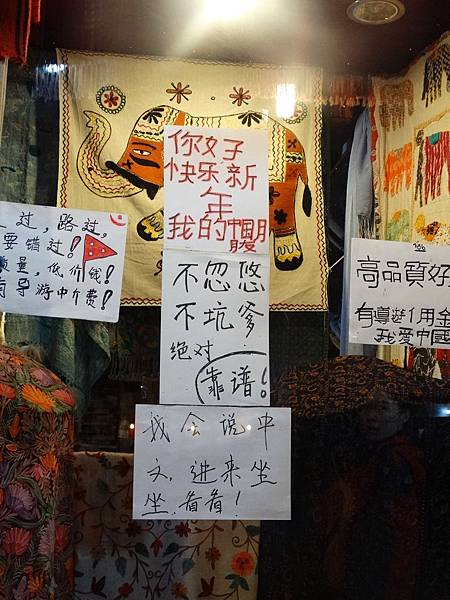 过，路过，
要错过！
量，低价钱！
导游中介费！
你好
快乐新
年
我的中国朋友
不忽悠
不坑爹
绝对
靠谱！
我会说中
文，进来坐
坐，看看！
高品質好
我爱中國